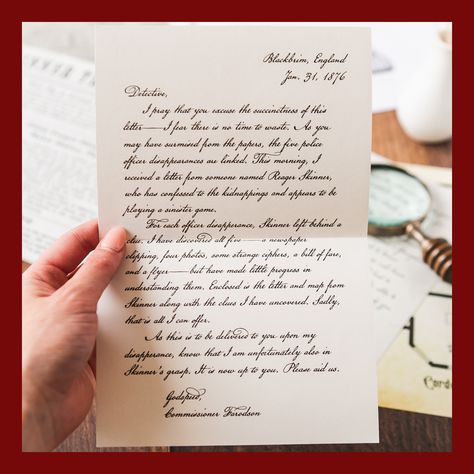 Blackbrim, England
Jan. 31, 1876
Detective,
I pray that you excuse the succinctness of this
letter—I fear there is no time to waste. As you
may have surmised from the papers, the five police
officer disappearances are linked. This morning, I
received a letter from someone named Reager Skinner,
who has confessed to the kidnappings and appears to be
playing a sinister game.
For each officer disapperance, Skinner left behind a
clue. I have discovered all five—a newspaper
clipping, four photos, some strange ciphers, a bill of fare,
and a flyer—but have made little progress in
understanding them. Enclosed is the letter and map from
Skinner along with the clues I have uncovered. Sadly,
that is all I can offer.
As this is to be delivered to you upon my
disapperance, know that I am unfortunately also in
Skinner's grasp. It is now up to you. Please aid us.
Godspeed,
Commissioner Farodson